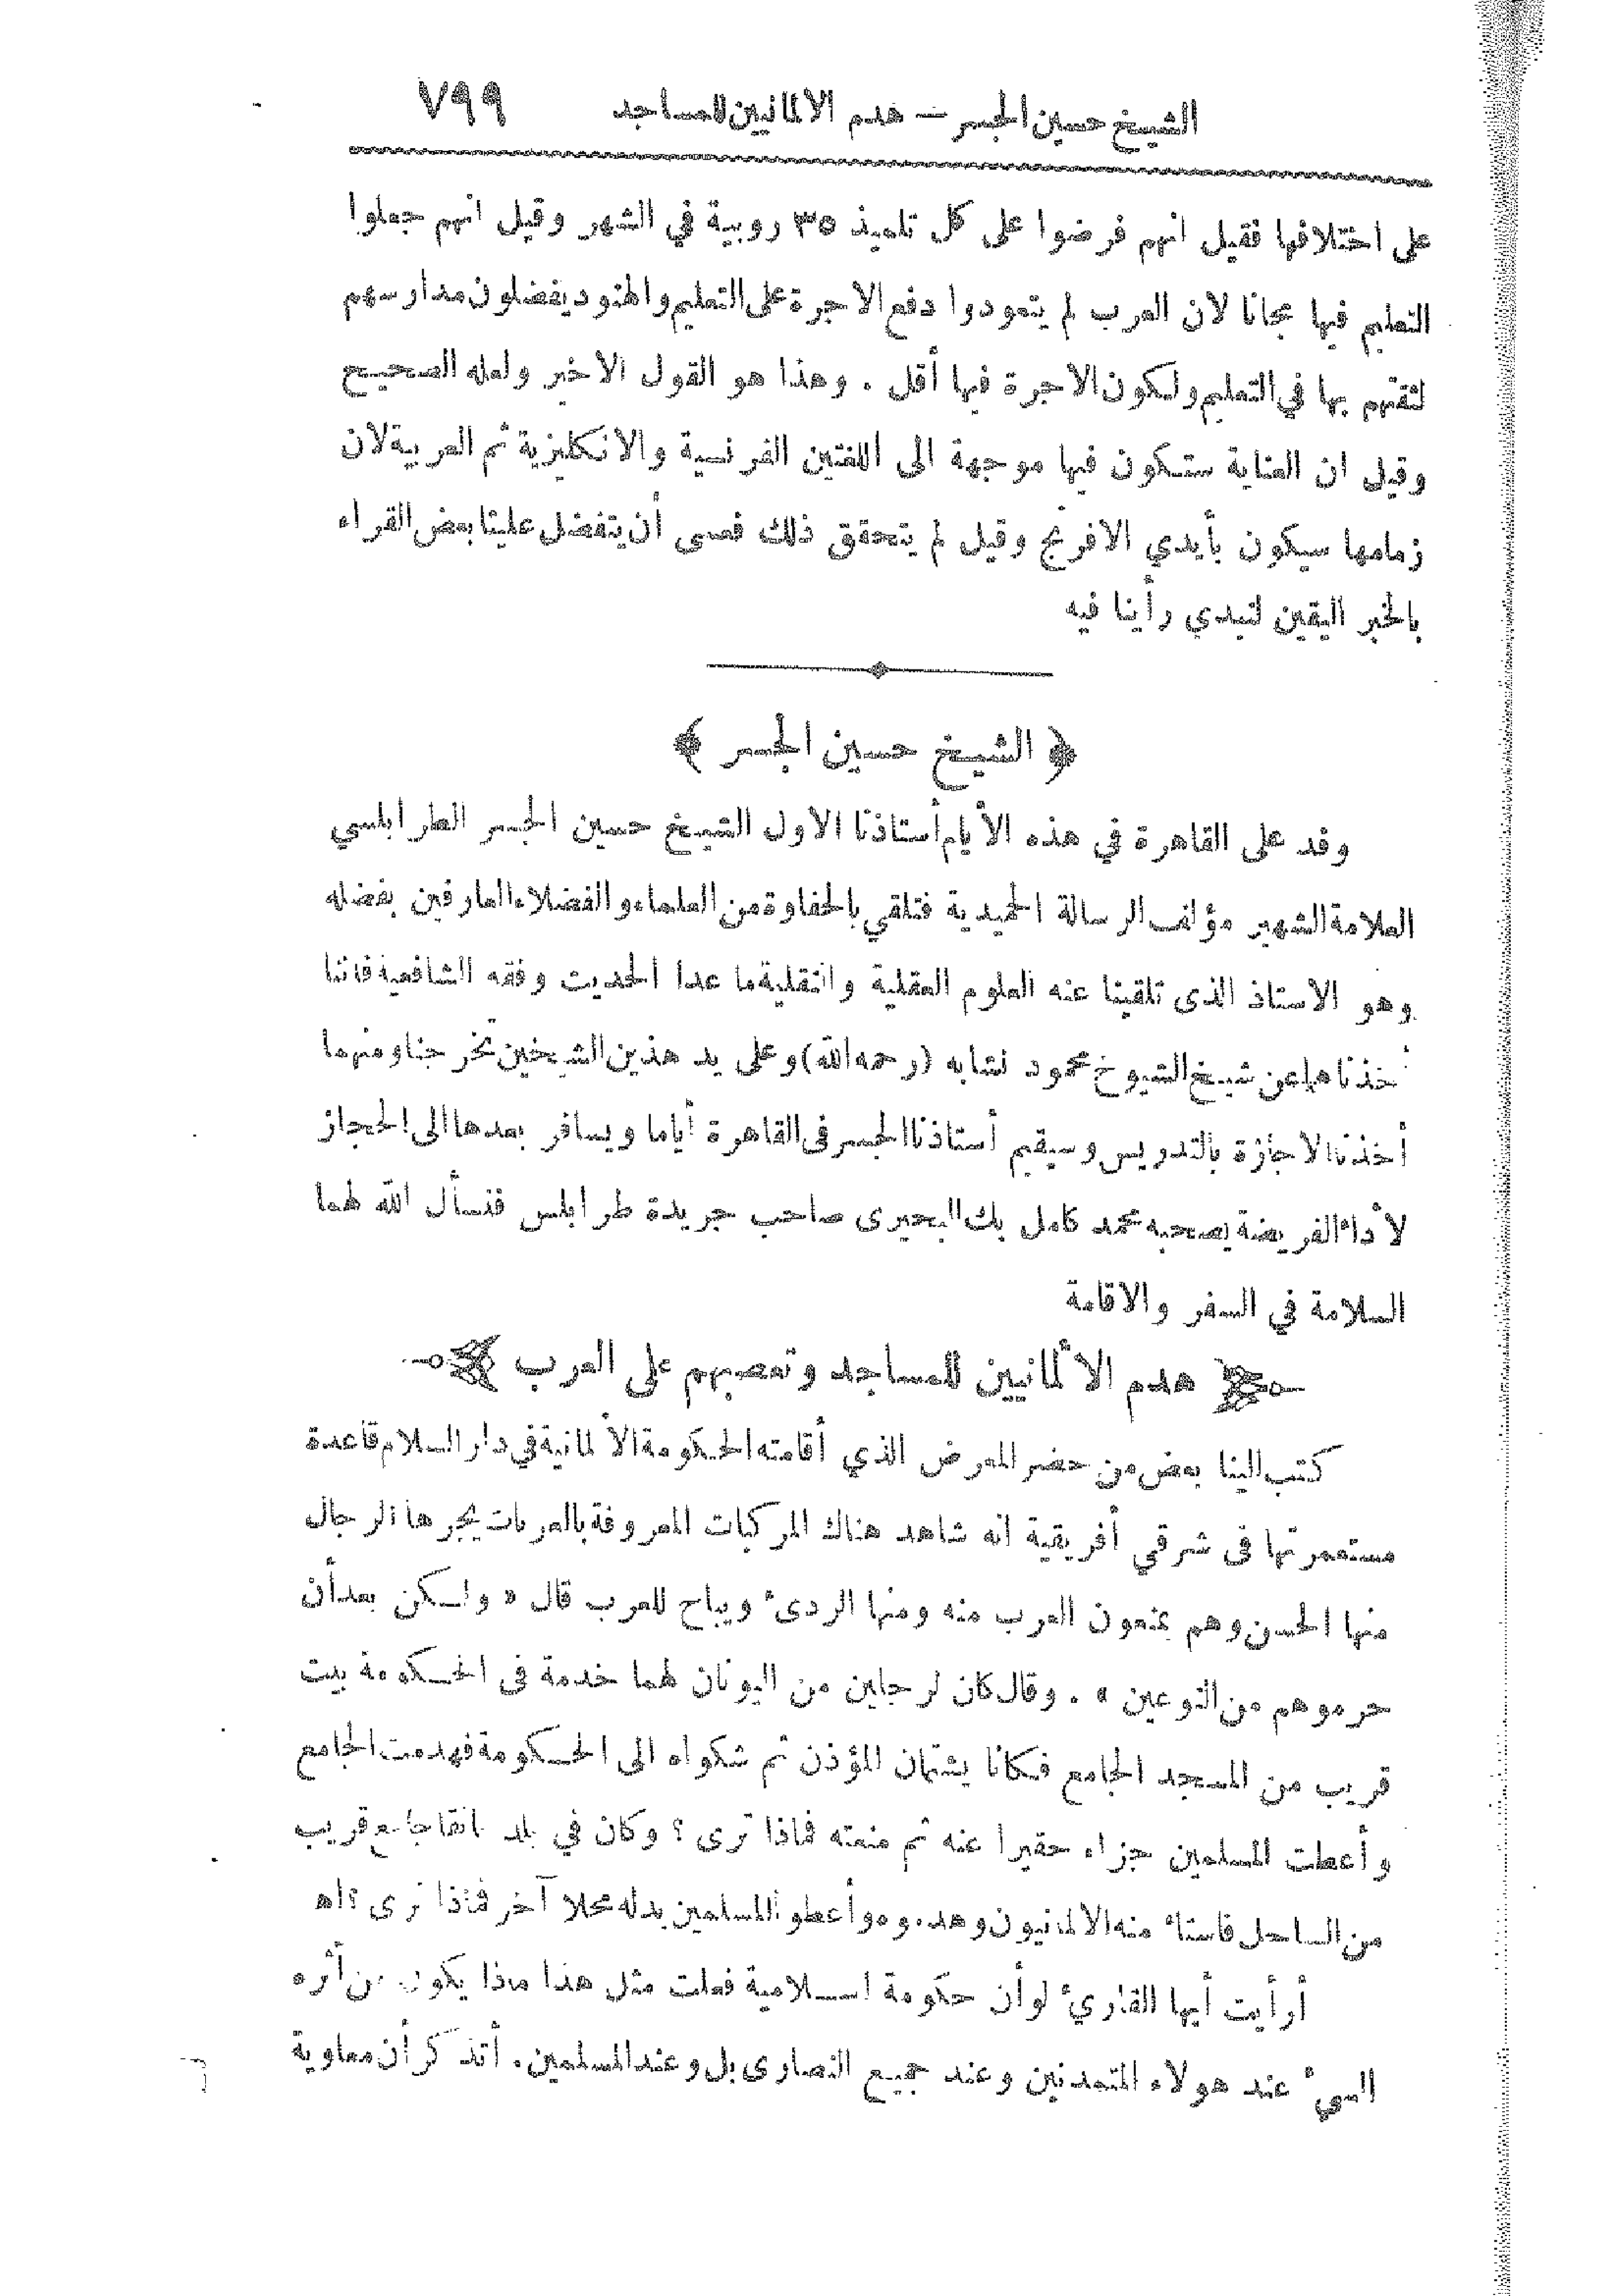 الشيخ حسين الجسر — هدم الالمانيين للمساجد ٧٩٩
على اختلافها فقيل انهم فرضوا على كل تلميذ ٣٥ روبية في الشهر وقيل انهم جعلوا
التعليم فيها مجانا لان العرب لم يتعودوا دفع الاجرة على التعليم والهنود يفضلون مدارسهم
لثقتهم بها في التعليم ولكون الاجرة فيها أقل . وهذا هو القول الاخير ولعله الصحيح
وقيل ان العناية ستكون فيها موجهة الى اللغتين الفرنسية والانكليزية ثم العربية لان
زمامها سيكون بأيدي الافرنج وقيل لم يتحقق ذلك فعسى أن يتفضل علينا بعض القراء
بالخبر اليقين لنبدي رأينا فيه
﴿ الشيخ حسين الجسر ﴾
وفد على القاهرة في هذه الأيام أستاذنا الاول الشيخ حسين الجسر الطرابلسي
العلامة الشهير مؤلف الرسالة الحميدية فتلقي بالحفاوة من العلماء والفضلاء العارفين بفضله
وهو الاستاذ الذى تلقينا عنه العلوم العقلية والنقلية ما عدا الحديث وفقه الشافعية فاننا
أخذناها عن شيخ الشيوخ محمود نشابه (رحمه الله) وعلى يد هذين الشيخين تخرجنا ومنهما
أخذنا الاجازة بالتدريس وسيقيم أستاذنا الجسر فى القاهرة أياما ويسافر بعدها الى الحجاز
لأداء الفريضة يصحبه محمد كامل بك البحيرى صاحب جريدة طرابلس فنسأل الله لهما
السلامة في السفر والاقامة
هدم الألمانيين للمساجد وتعصبهم على العرب
كتب الينا بعض من حضر المعرض الذي أقامته الحكومة الألمانية في دار السلام قاعدة
مستعمرتها فى شرقي أفريقية انه شاهد هناك المركبات المعروفة بالعربات يجرها الرجال
منها الحسن وهم يمنعون العرب منه ومنها الردىء ويباح للعرب قال « ولكن بعد أن
حرموهم من النوعين » . وقال كان لرجلين من اليونان لهما خدمة فى الحكومة بيت
قريب من المسجد الجامع فكانا يشتمان المؤذن ثم شكواه الى الحكومة فهدمت الجامع
وأعطت المسلمين جزاء حقيرا عنه ثم منعته فماذا ترى ؟ وكان في بلد جامع قريب
من الساحل فاستاء منه الالمانيون وهدموه وأعطوا المسلمين بدله محلا آخر فماذا ترى ؟ اه
أرأيت أيها القارىء لو أن حكومة اسلامية فعلت مثل هذا ماذا يكون من أثره
السيء عند هولاء المتمدنين وعند جميع النصارى بل وعند المسلمين . أتذكر أن معاوية